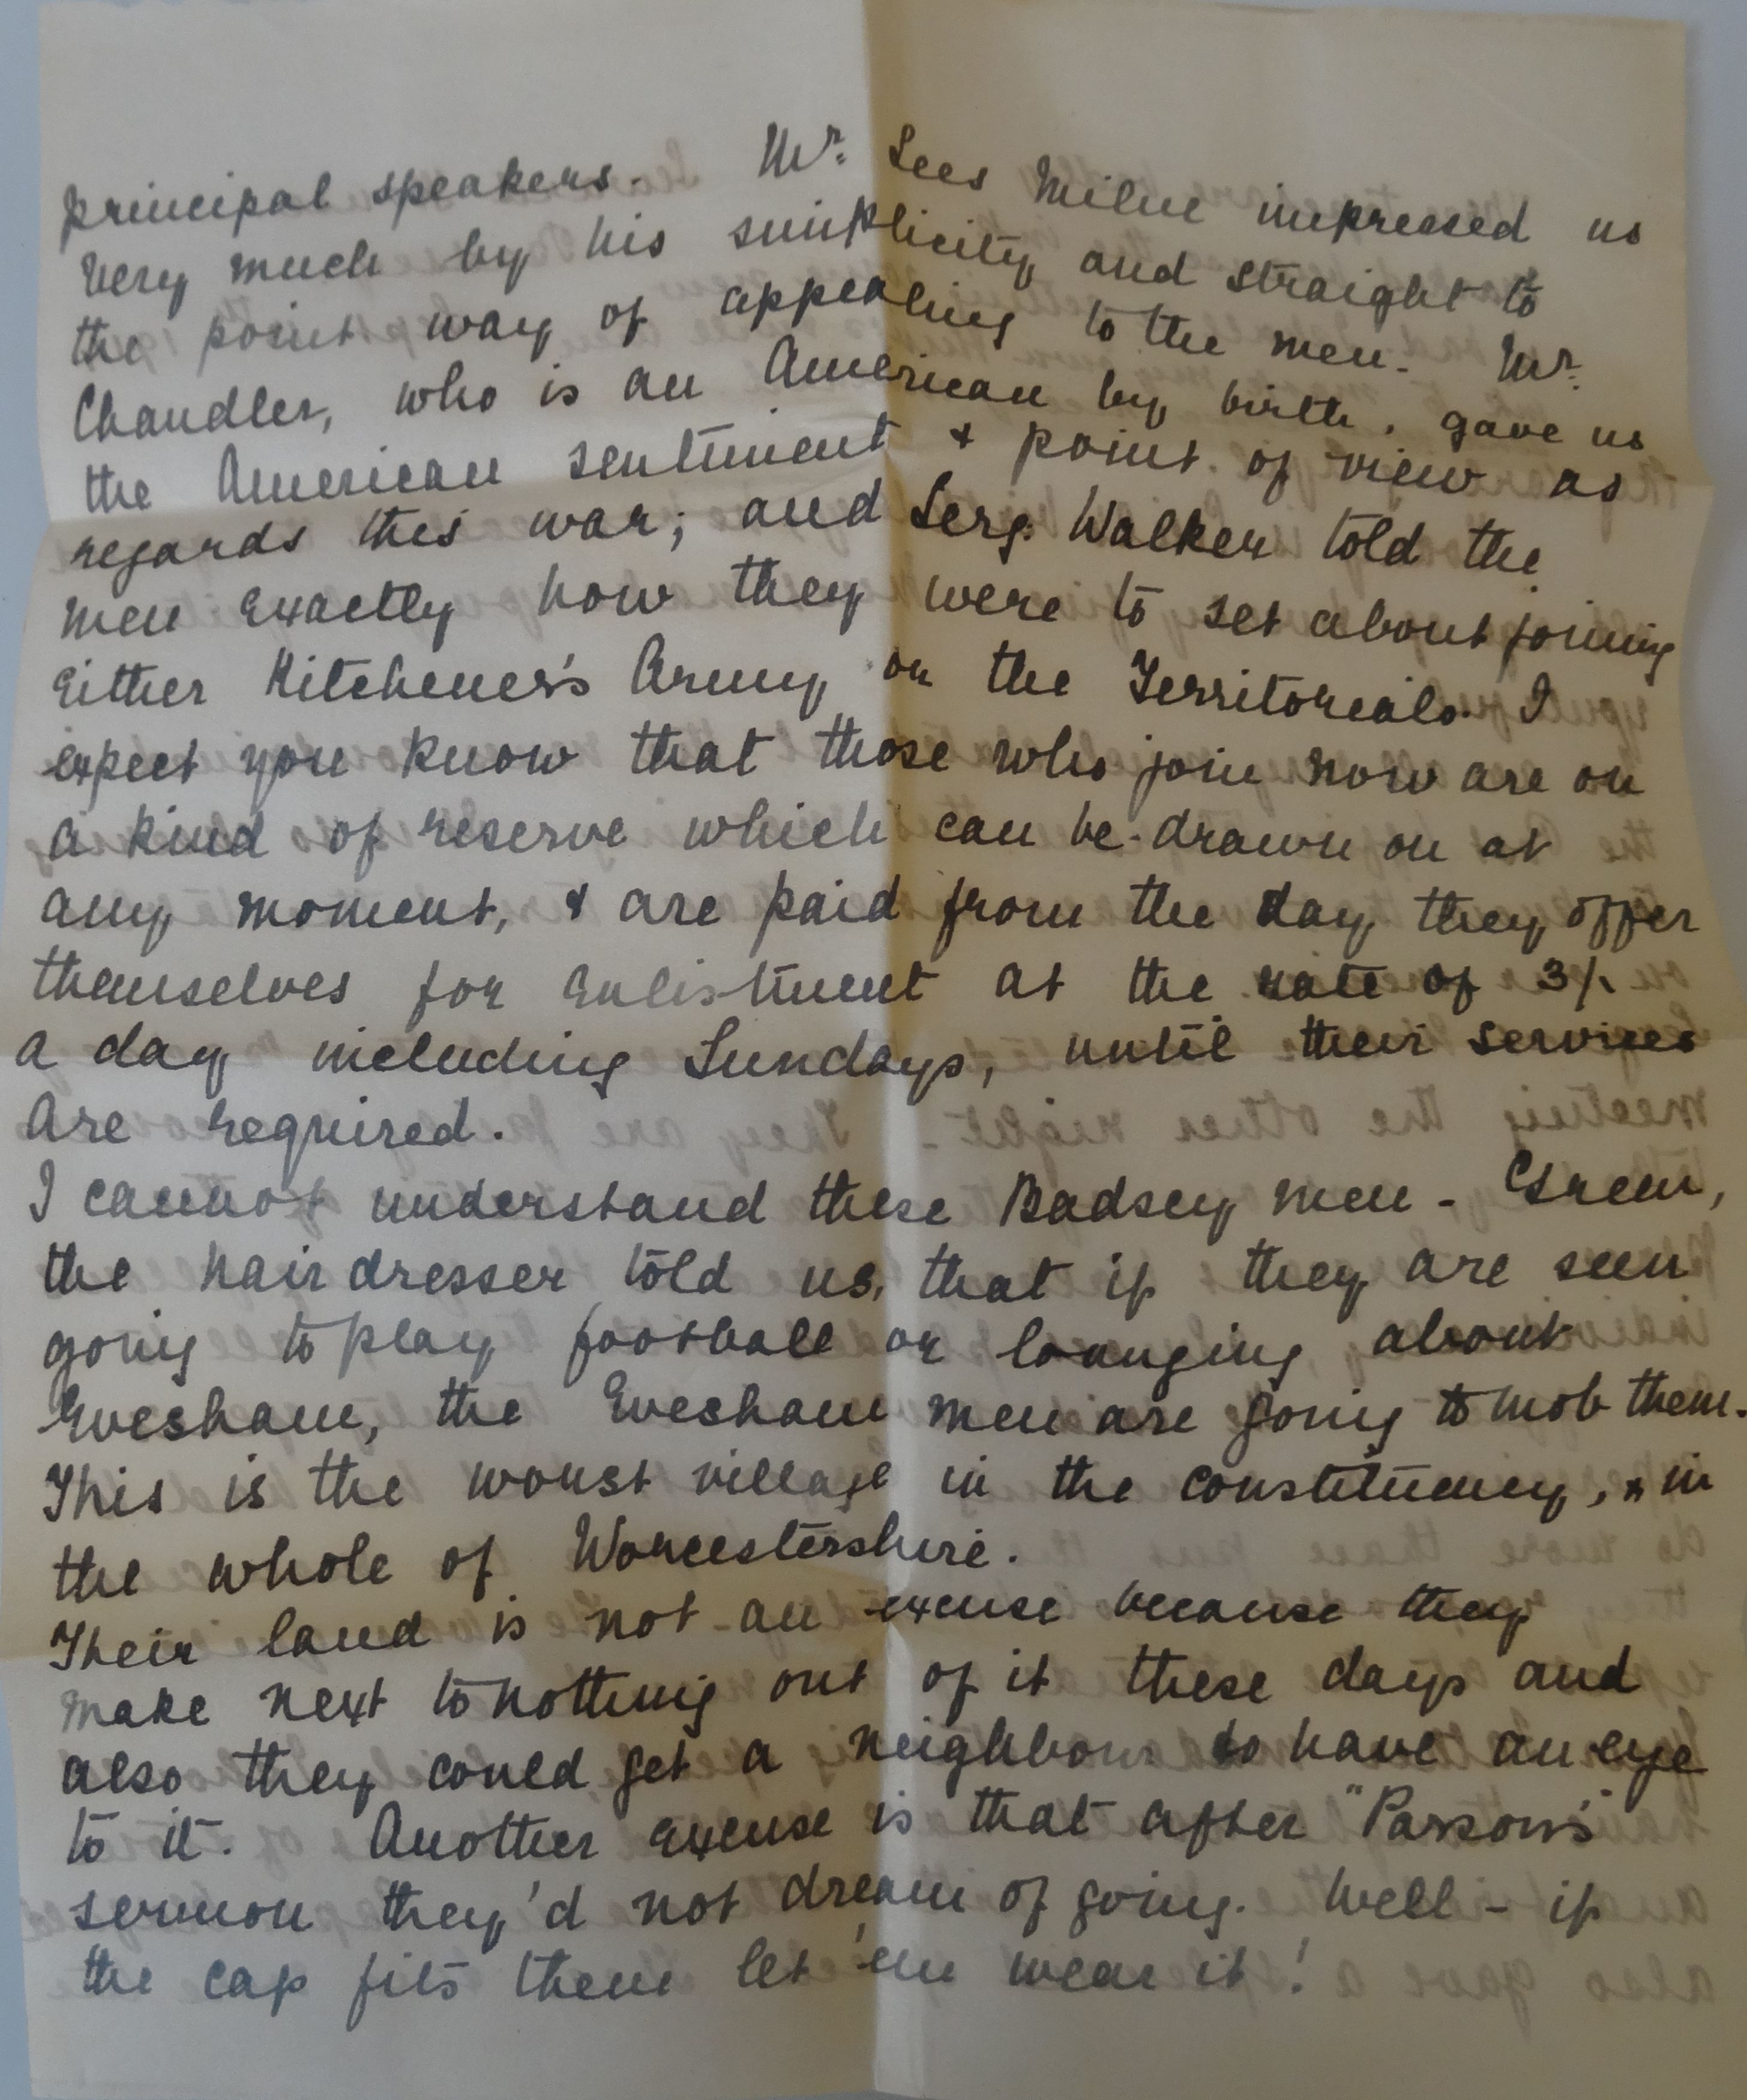 principal speakers. Mr. Lees Milne impressed us
very much by his simplicity and straight to
the point way of appealing to the men. Mr.
Chandler, who is an American by birth, gave us
the American sentiment & point of view as
regards this war; and Serg. Walker told the
men exactly how they were to set about joining
either Kitchener's Army or the Territorials. I
expect you know that those who join now are on
a kind of reserve which can be drawn on at
any moment, & are paid from the day they offer
themselves for enlistment at the rate of 3/-
a day including Sundays, until their services
are required.
I cannot understand these Badsey men - Green,
the hairdresser told us, that if they are seen
going to play football or lounging about
Evesham, the Evesham men are going to mob them.
This is the worst village in the constituency, & in
the whole of Worcestershire.
Their land is not an excuse because they
make next to nothing out of it these days and
also they could get a neighbour to have an eye
to it. Another excuse is that after "Parson's"
sermon they'd not dream of going. Well - if
the cap fits them let 'em wear it!